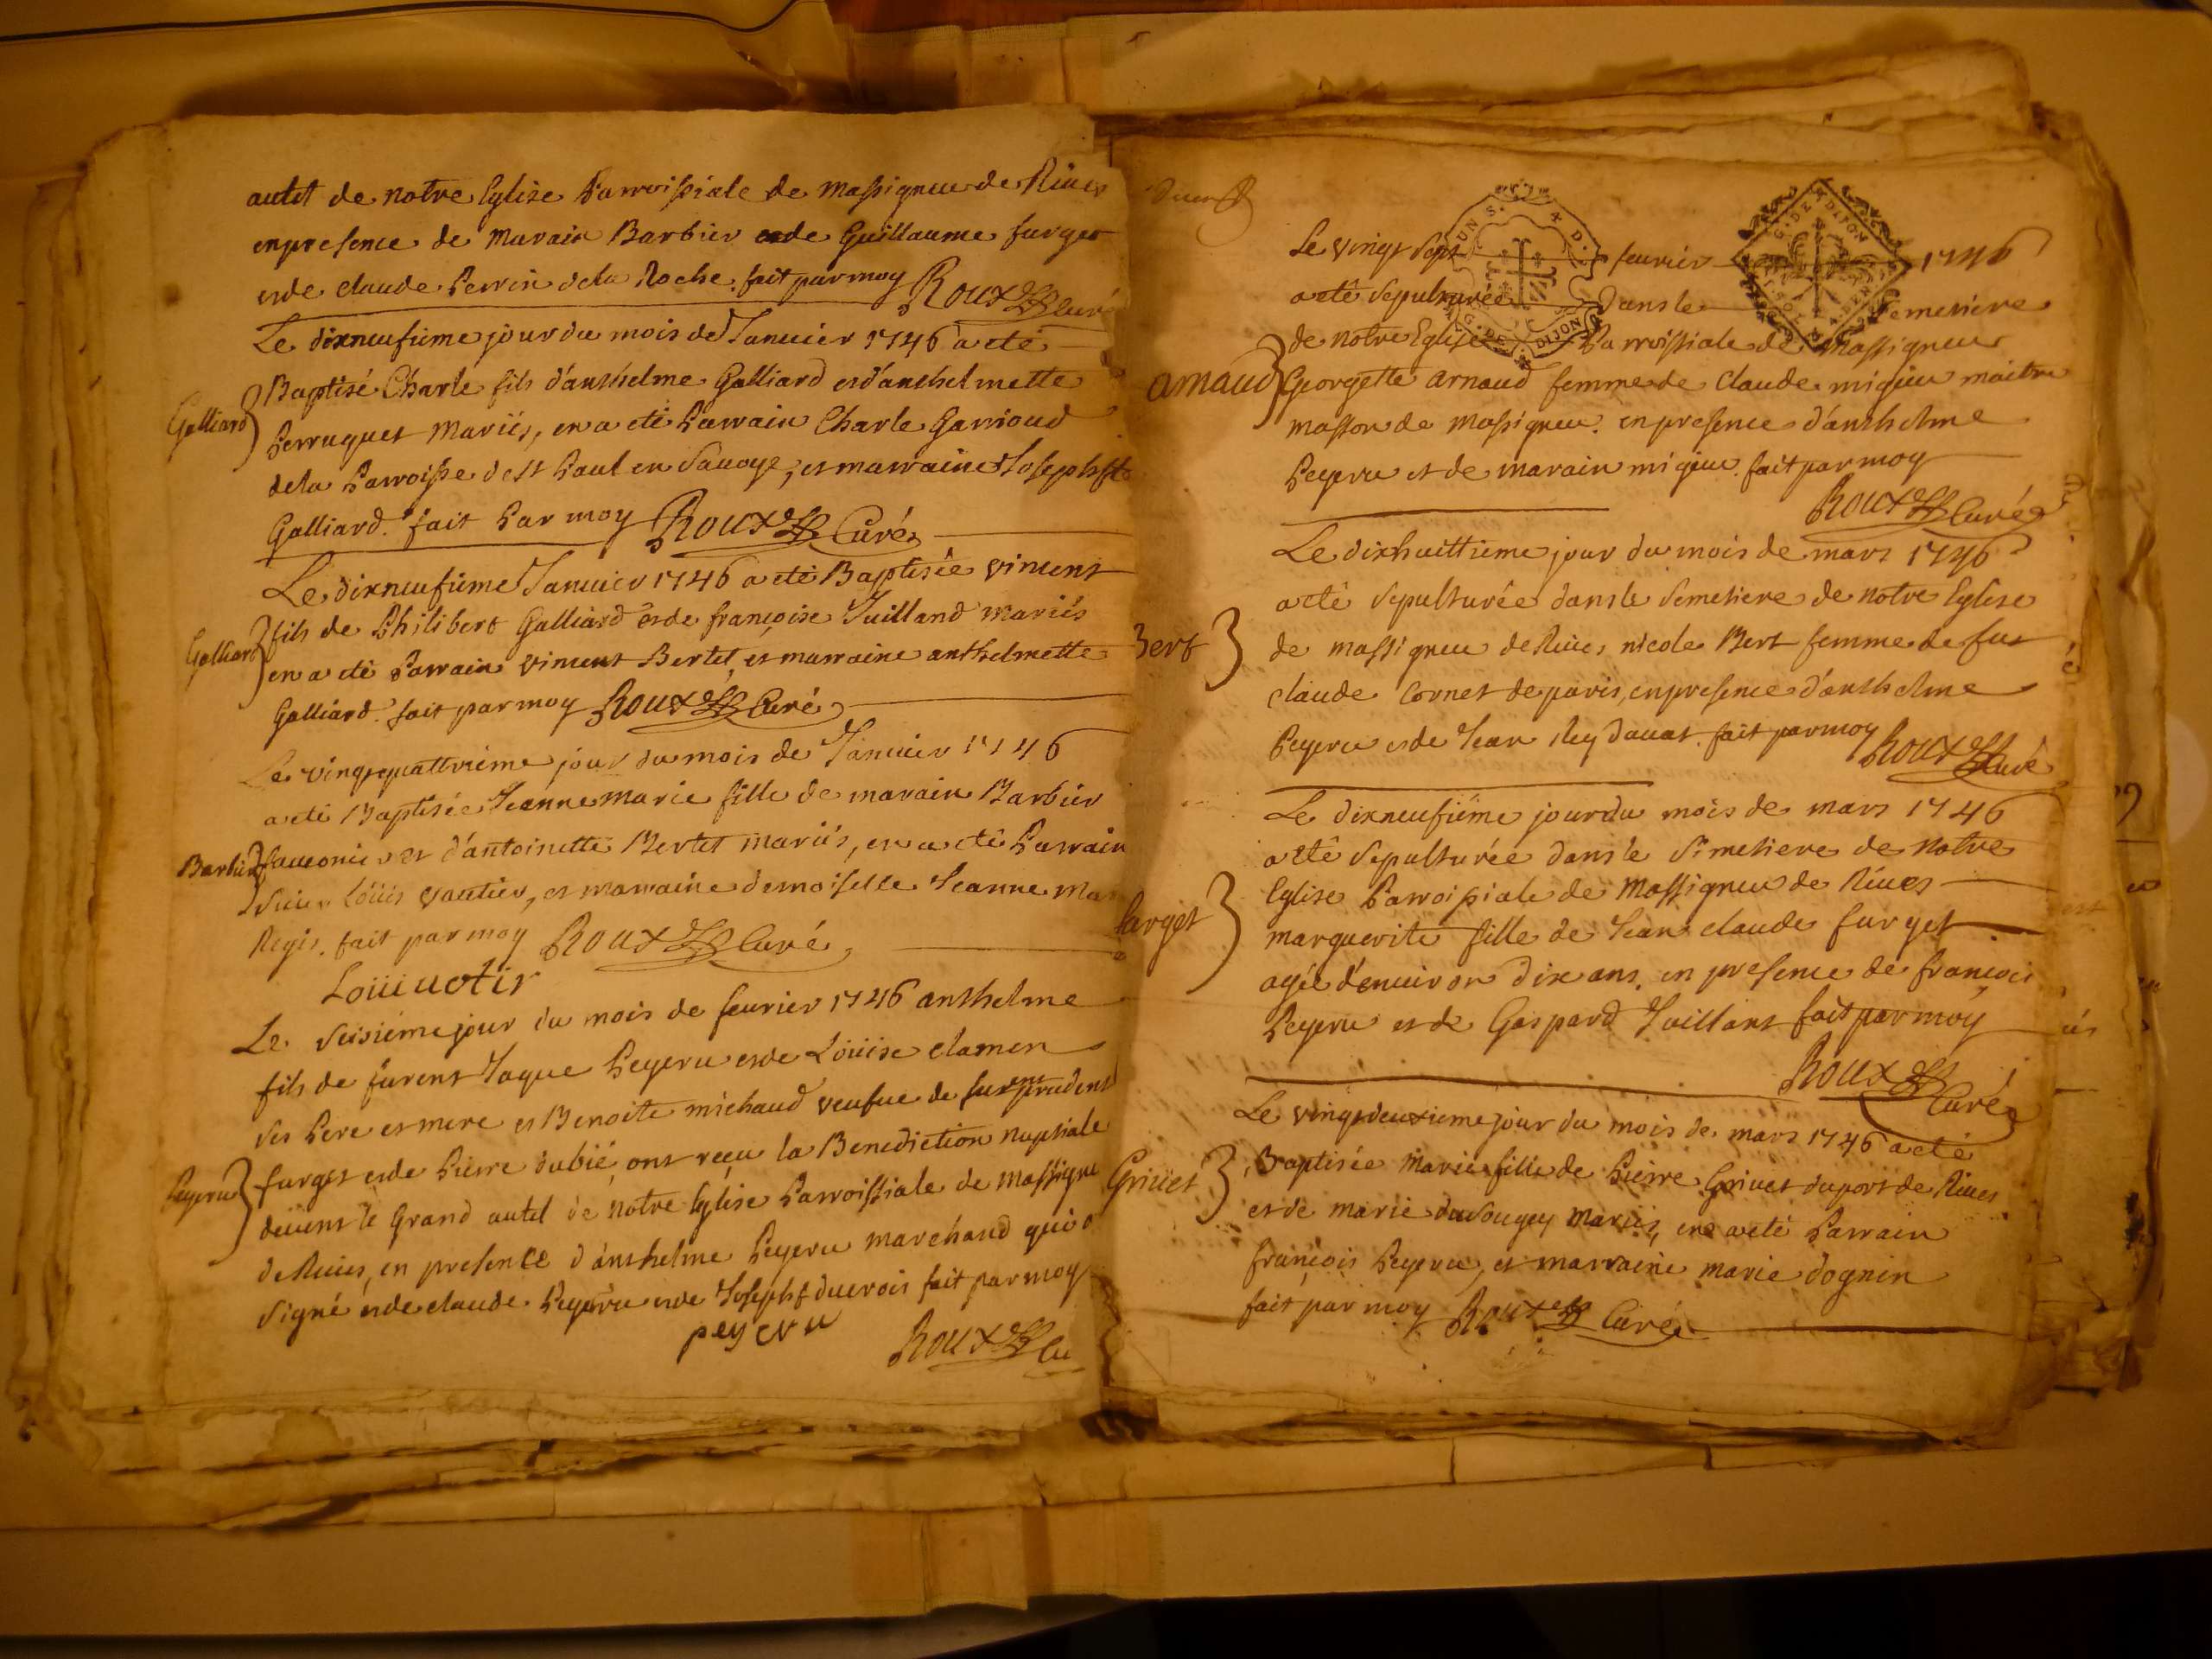 autel de notre Eglise Parroissiale de Massigneu de Rives
en presence de Marain Barbier et de Guillaume furget
et de claude Perrin de la Roche. fait par moy Roux Curé
Le dixneufieme jour du mois de Janvier 1746 a eté
Galliard
Baptisé Charle fils d'anthelme Galliard et d'anthelmette
Perruquet Mariés, en a eté Parrain Charle Garrioud
de la Parroisse de St Paul en Savoye, et marraine Josephte
Galliard. fait Par moy Roux Curé
Le dixneufieme Janvier 1746 a eté Baptisée vincent
Galliard
fils de Philibert Galliard et de françoise Juilland mariés
en a eté Parrain vincent Bertet, et marraine anthelmette
Galliard. fait par moy Roux Curé
Le vingtquattrieme jour du mois de Janvier 1746
a eté Baptisée Jeanne marie fille de marain Barbier
Barbier
fauconier et d'antoinette Bertet mariés, en a eté Parrain
Sieur Loüis vautier, et marraine demoiselle Jeanne Ma
Regis. fait par moy Roux Curé
Loiii votir
Le Seisiéme jour du mois de fevrier 1746 anthelme
fils de furent Jaque Peyeru et de Loüise clamen
ses Pere et mere et Benoite michaud veufue de furent prudent
Peyeru
furget et de Pierre dubié, ont reçu la Benediction nuptiale
devent le Grand autel de notre Eglise Parroissiale de Massigneu
de Rives, en presence d'anthelme Peyeru marchand qui a
signé et de claude Peyeru et de Joseph ducrois fait par moy
peyeru
Roux Cu
Le vingt sept fevrier 1746
a eté Sepulturée dans le Semetiere
de notre Eglise Parroissiale de Massigneu
arnaud
Georgette arnaud femme de Claude migieu maitre
masson de Massigneu. en presence d'anthelme
Peyeru et de marain migieu. fait par moy
Roux Curé
UNS
G. DE DIJON
G. DE DIJON
Le dixhuittieme jour du mois de mars 1746
a eté Sepulturée dans le Semetiere de notre Eglise
Bert
de massigneu de Rives nicole Bert femme de fut
claude Cornet de paris, en presence d'anthelme
Peyeru et de Jean Rey davat. fait par moy Roux Curé
Le dixneufiéme jour du mois de mars 1746
a eté Sepulturée dans le Simetiere de notre
Eglise Parroissiale de Massigneu de Rives
furget
marguerite fille de Jean claude furget
agée d'environ dix ans. en presence de françois
Peyeru et de Gaspard Juillant fait par moy
Roux Curé
Le vingtdeuxieme jour du mois de mars 1746 a eté
Grivet
Baptisée Marie fille de Pierre Grivet du port de Rives
et de marie du Sougey Mariés, en a eté Parrain
françois Peyeru, et marraine marie dognin
fait par moy Roux Curé